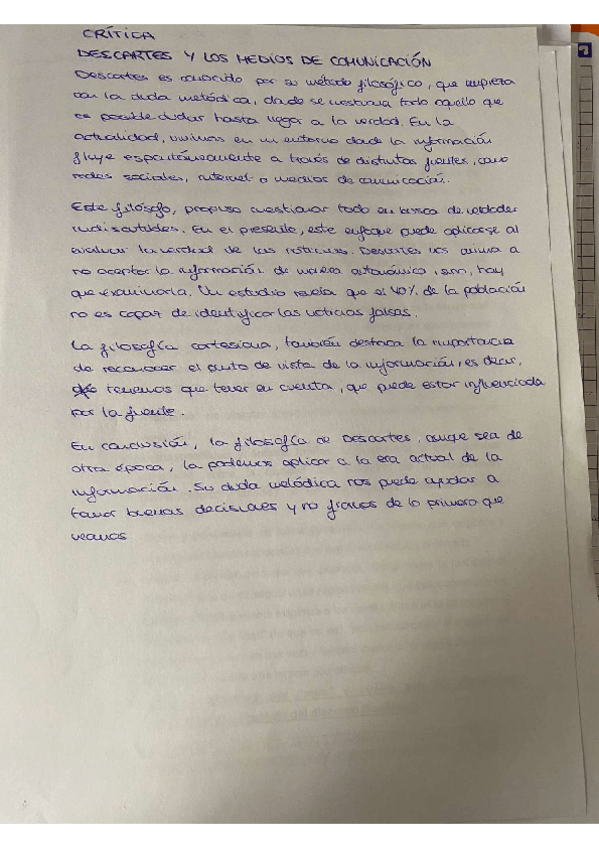 CRÍTICA
DESCARTES Y LOS MEDIOS DE COMUNICACIÓN
Descartes es conocido por su método filosófico, que empieza
con la duda metódica, donde se cuestiona todo aquello que
es posible dudar hasta llegar a la verdad. En la
actualidad, vivimos en un entorno donde la información
fluye espontáneamente a través de distintas fuentes, como
redes sociales, internet o medios de comunicación.
Este filósofo, propuso cuestionar todo en busca de verdades
indiscutibles. En el presente, este enfoque puede aplicarse al
evaluar la verdad de las noticias. Descartes nos anima a
no aceptar la información de manera automática, sino, hay
que examinarla. Un estudio revela que el 40% de la población
no es capaz de identificar las noticias falsas.
La filosofía cartesiana, también destaca la importancia
de reconocer el punto de vista de la información, es decir,
tenemos que tener en cuenta, que puede estar influenciada
por la fuente.
En conclusión, la filosofía de Descartes, aunque sea de
otra época, la podemos aplicar a la era actual de la
información. Su duda metódica nos puede ayudar a
tomar buenas decisiones y no fiarnos de lo primero que
veamos